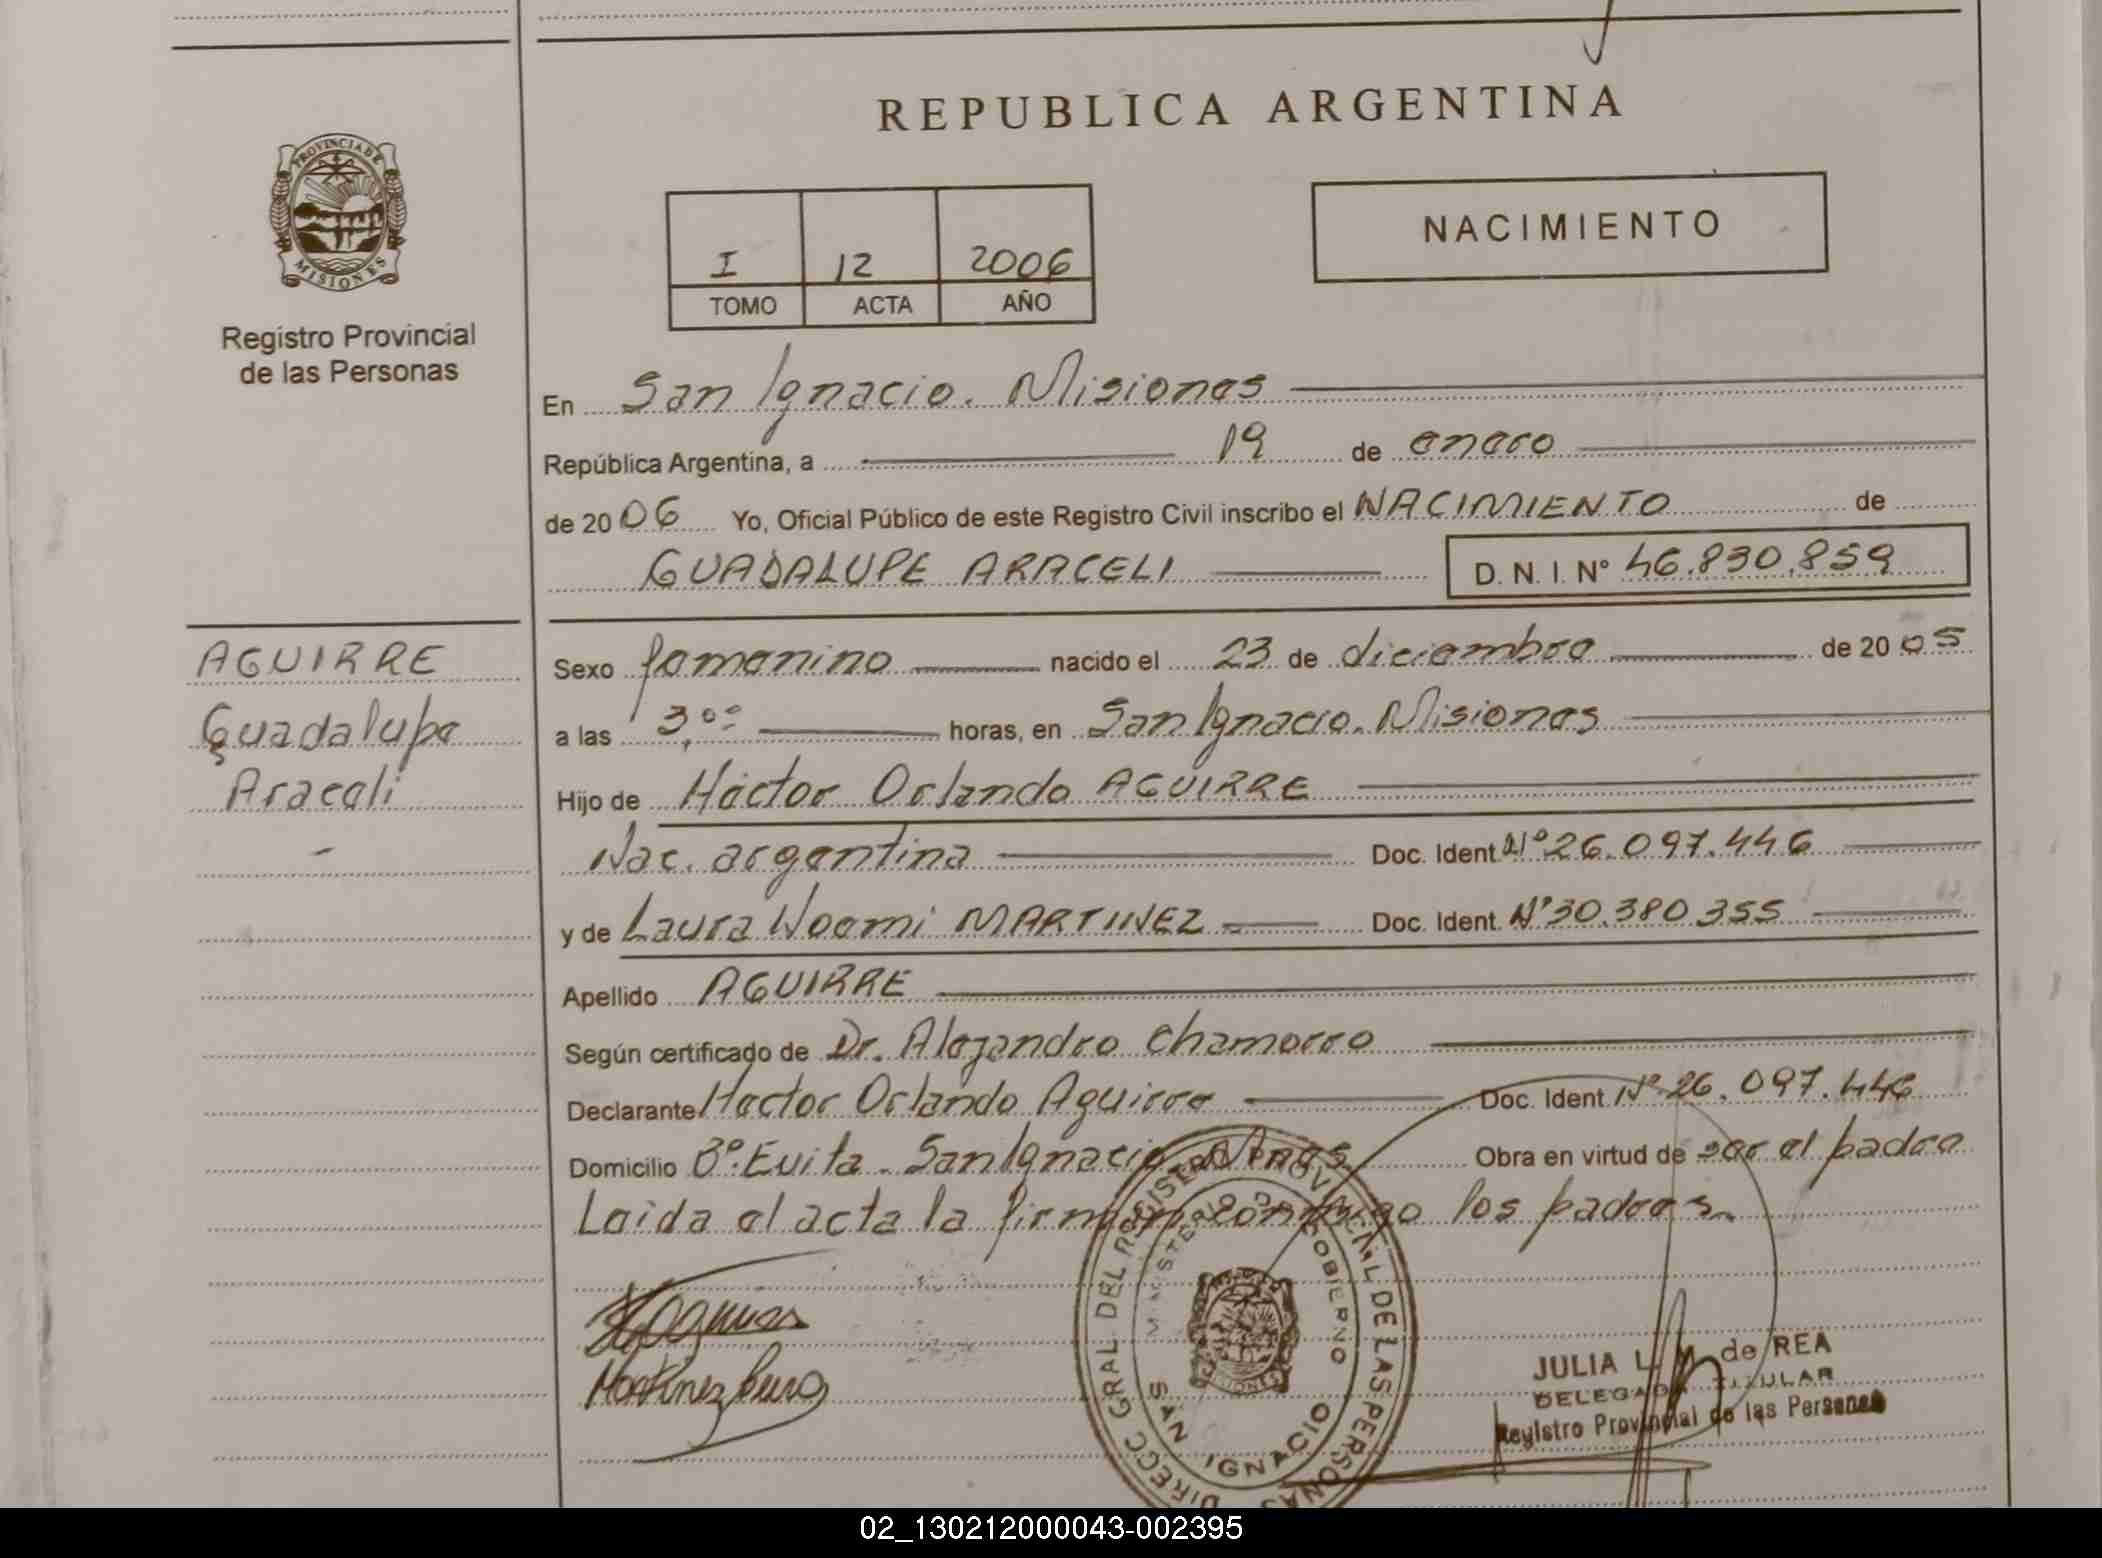 REPUBLICA ARGENTINA
PROVINCIA DE
MISIONES
Registro Provincial
de las Personas
I 12 2006
TOMO ACTA AÑO
NACIMIENTO
En San Ignacio. Misiones
República Argentina, a 19 de enero
de 2006 Yo, Oficial Público de este Registro Civil inscribo el NACIMIENTO de
GUADALUPE ARACELI D. N. I. Nº 46.830.859
AGUIRRE
Guadalupe
Araceli
Sexo femenino nacido el 23 de diciembre de 2005
a las 3,00 horas, en San Ignacio. Misiones
Hijo de Héctor Orlando AGUIRRE
Nac. argentina Doc. Ident. Nº 26.097.446
y de Laura Noemi MARTINEZ Doc. Ident. Nº 30.380.355
Apellido AGUIRRE
Según certificado de Dr. Alejandro Chamorro
Declarante Hector Orlando Aguirre Doc. Ident. Nº 26.097.446
Domicilio Bº. Evita. San Ignacio Mnes. Obra en virtud de ser el padre
Leida el acta la firman conmigo los padres.
DIRECC GRAL DEL REGISTRO PROVINCIAL DE LAS PERSONAS
MINISTERIO DE GOBIERNO
MISIONES
SAN IGNACIO
Martinez
JULIA L. M de REA
DELEGADA TITULAR
Registro Provincial de las Personas
02_130212000043-002395